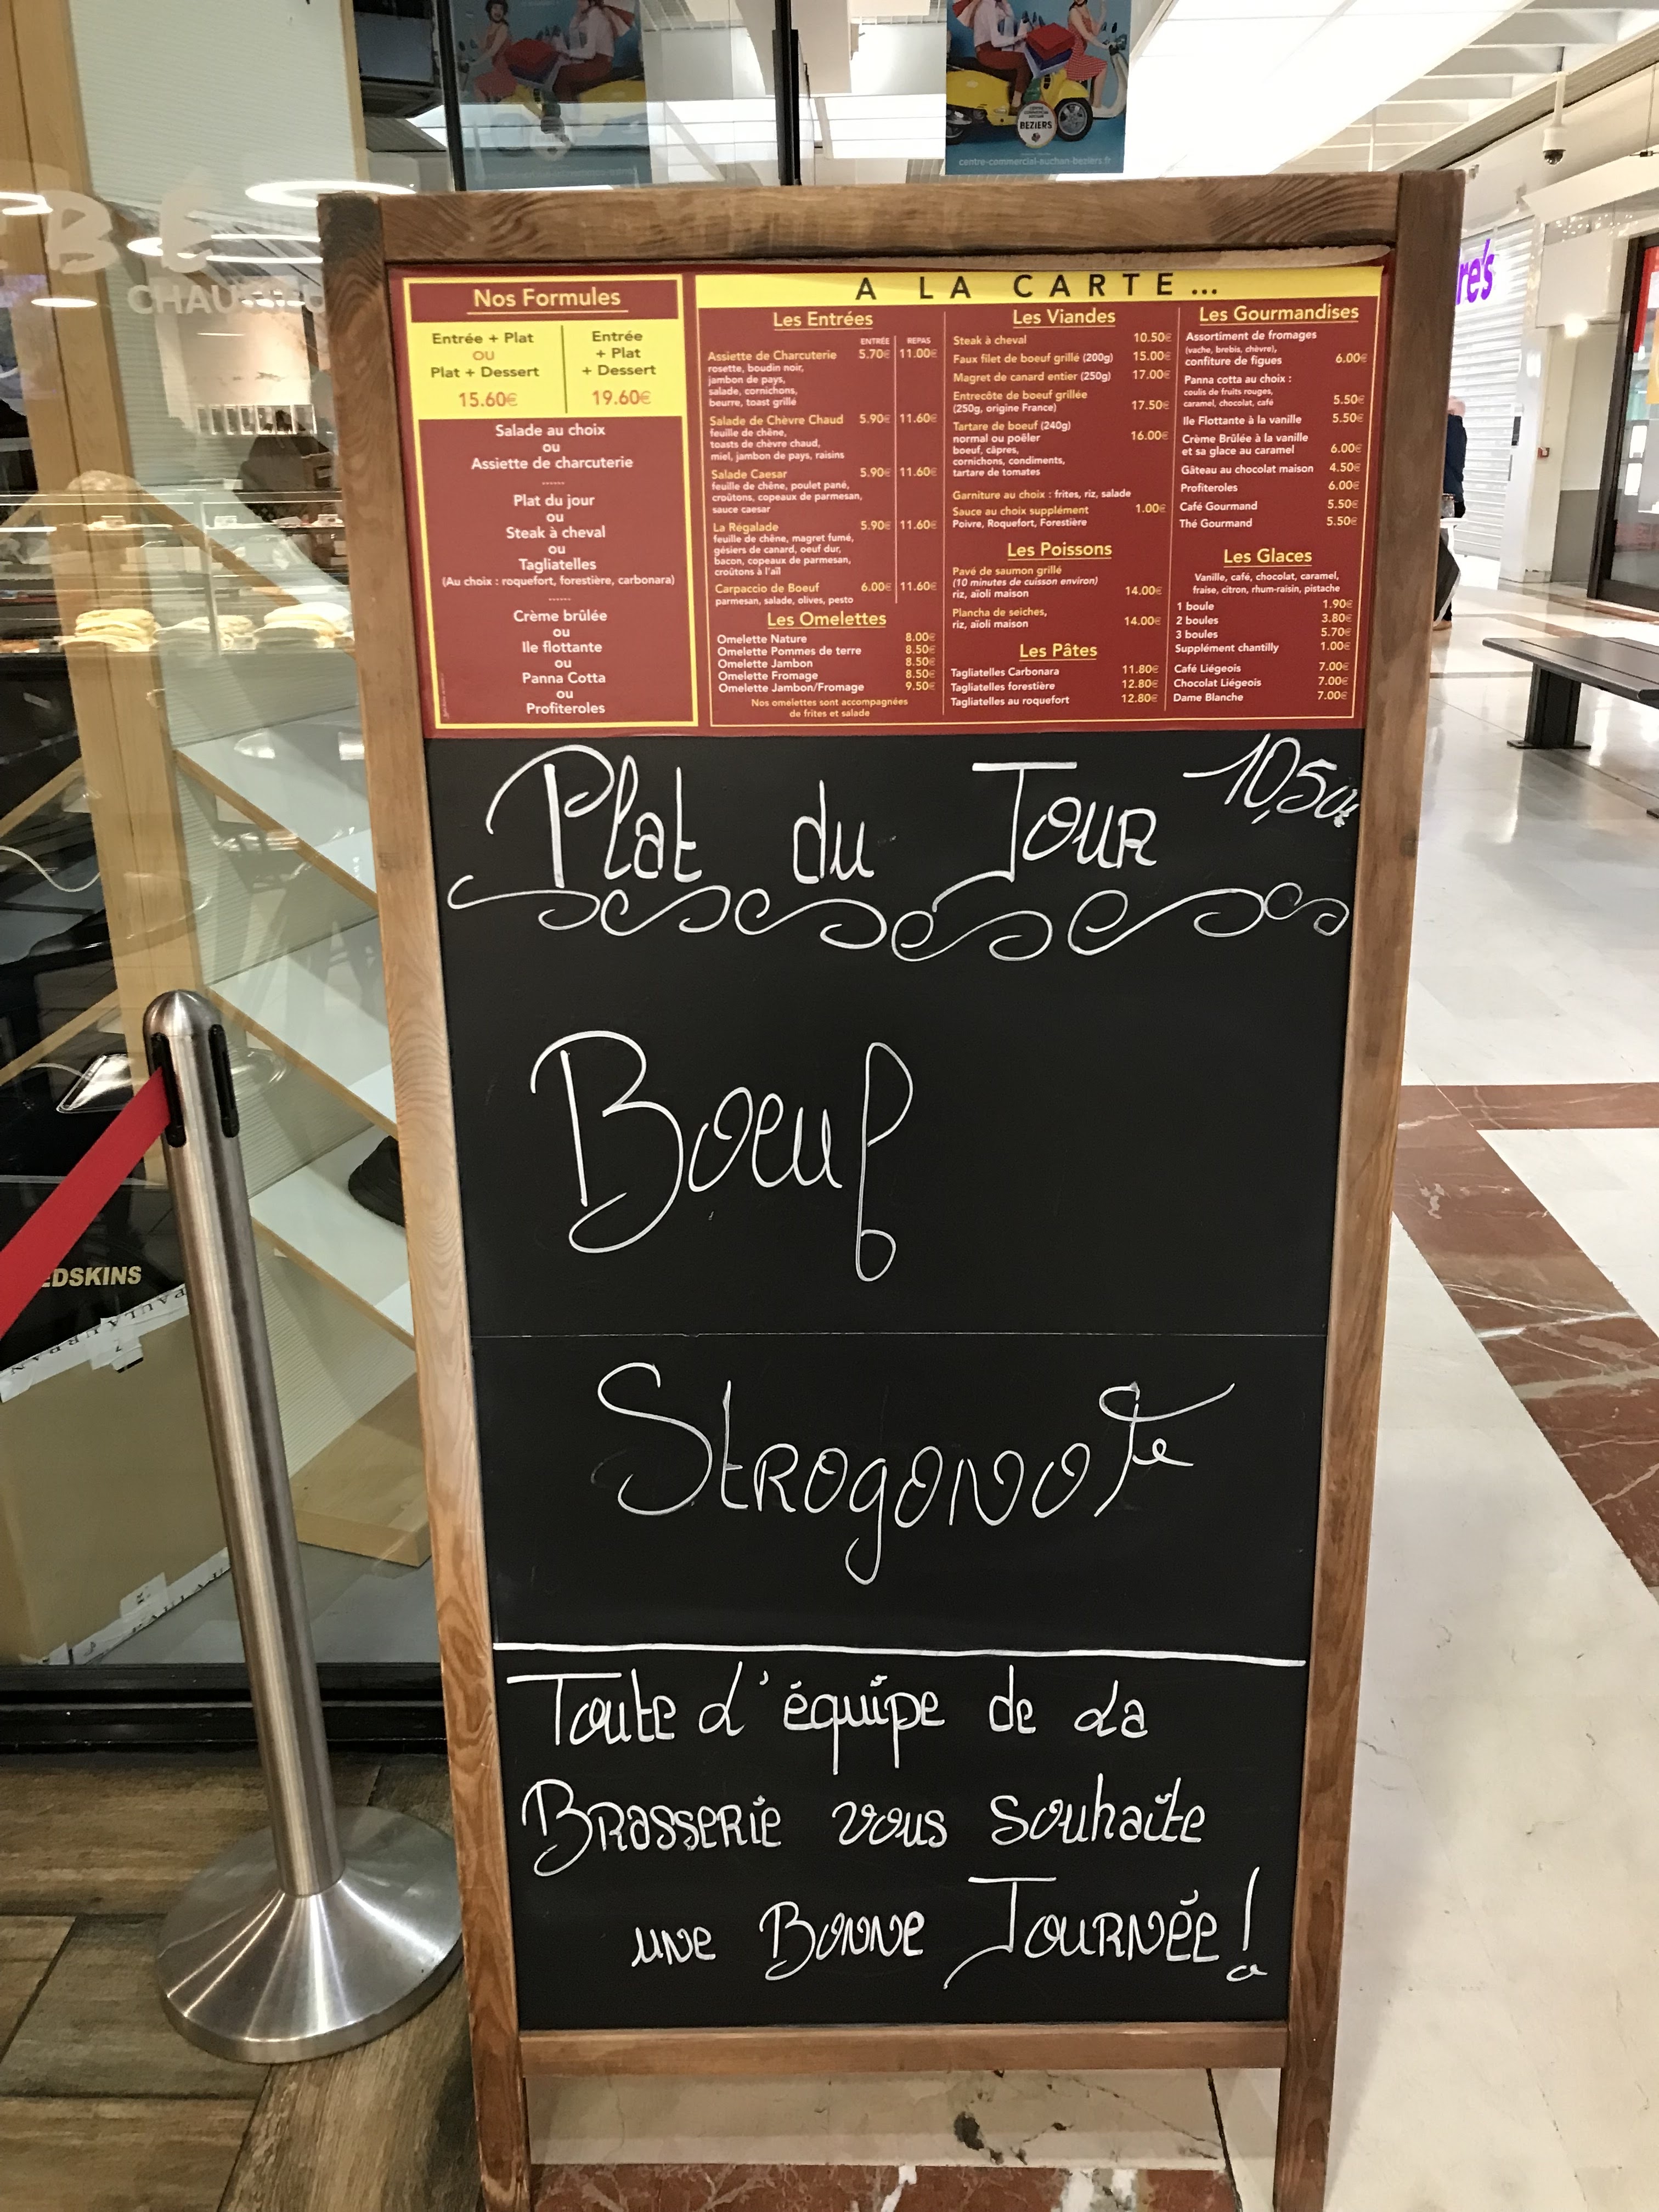 BEZIERS
centre-commercial-auchan-beziers.fr
re's
Nos Formules
Entrée + Plat
OU
Plat + Dessert
15.60€
Entrée
+ Plat
+ Dessert
19.60€
Salade au choix
ou
Assiette de charcuterie
------
Plat du jour
ou
Steak à cheval
ou
Tagliatelles
(Au choix : roquefort, forestière, carbonara)
------
Crème brûlée
ou
Ile flottante
ou
Panna Cotta
ou
Profiteroles
A LA CARTE...
Les Entrées
ENTRÉE REPAS
Assiette de Charcuterie 5.70€ 11.00€
rosette, boudin noir,
jambon de pays,
salade, cornichons,
beurre, toast grillé
Salade de Chèvre Chaud 5.90€ 11.60€
feuille de chêne,
toasts de chèvre chaud,
miel, jambon de pays, raisins
Salade Caesar 5.90€ 11.60€
feuille de chêne, poulet pané,
croûtons, copeaux de parmesan,
sauce caesar
La Régalade 5.90€ 11.60€
feuille de chêne, magret fumé,
gésiers de canard, oeuf dur,
bacon, copeaux de parmesan,
croûtons à l'aïl
Carpaccio de Boeuf 6.00€ 11.60€
parmesan, salade, olives, pesto
Les Omelettes
Omelette Nature 8.00€
Omelette Pommes de terre 8.50€
Omelette Jambon 8.50€
Omelette Fromage 8.50€
Omelette Jambon/Fromage 9.50€
Nos omelettes sont accompagnées
de frites et salade
Les Viandes
Steak à cheval 10.50€
Faux filet de boeuf grillé (200g) 15.00€
Magret de canard entier (250g) 17.00€
Entrecôte de boeuf grillée
(250g, origine France) 17.50€
Tartare de boeuf (240g)
normal ou poêler 16.00€
boeuf, câpres,
cornichons, condiments,
tartare de tomates
Garniture au choix : frites, riz, salade
Sauce au choix supplément 1.00€
Poivre, Roquefort, Forestière
Les Poissons
Pavé de saumon grillé
(10 minutes de cuisson environ)
riz, aïoli maison 14.00€
Plancha de seiches,
riz, aïoli maison 14.00€
Les Pâtes
Tagliatelles Carbonara 11.80€
Tagliatelles forestière 12.80€
Tagliatelles au roquefort 12.80€
Les Gourmandises
Assortiment de fromages
(vache, brebis, chèvre),
confiture de figues 6.00€
Panna cotta au choix :
coulis de fruits rouges,
caramel, chocolat, café 5.50€
Ile Flottante à la vanille 5.50€
Crème Brûlée à la vanille
et sa glace au caramel 6.00€
Gâteau au chocolat maison 4.50€
Profiteroles 6.00€
Café Gourmand 5.50€
Thé Gourmand 5.50€
Les Glaces
Vanille, café, chocolat, caramel,
fraise, citron, rhum-raisin, pistache
1 boule 1.90€
2 boules 3.80€
3 boules 5.70€
Supplément chantilly 1.00€
Café Liégeois 7.00€
Chocolat Liégeois 7.00€
Dame Blanche 7.00€
Plat du Jour 10,50€
Boeuf
Strogonofe
Toute L'équipe de La
Brasserie vous souhaite
une Bonne Journée!
EDSKINS